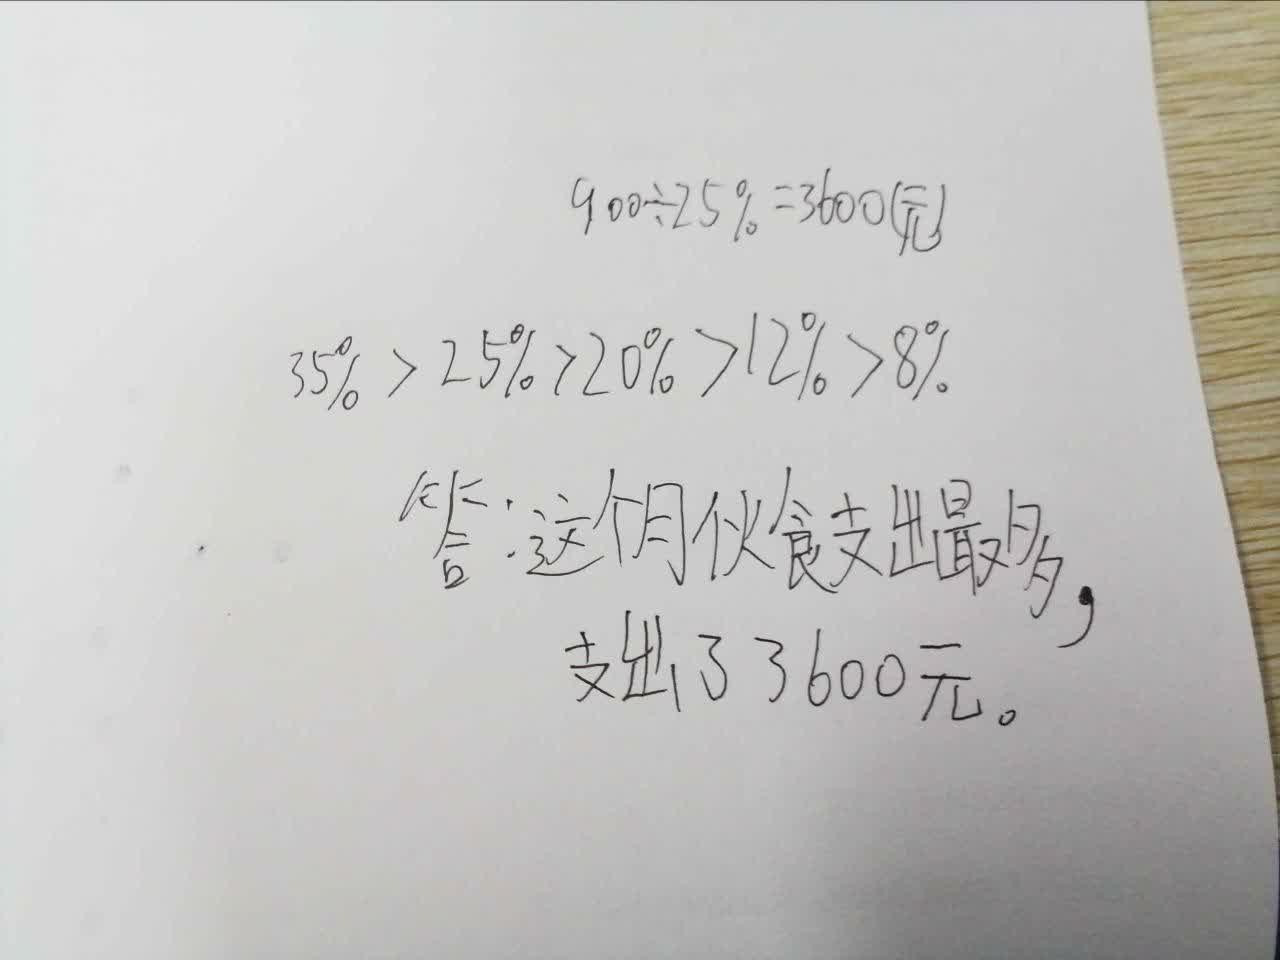 900÷25%=3600(元)
35%>25%>20%>12%>8%
答:这个月伙食支出最多,
支出了3600元。